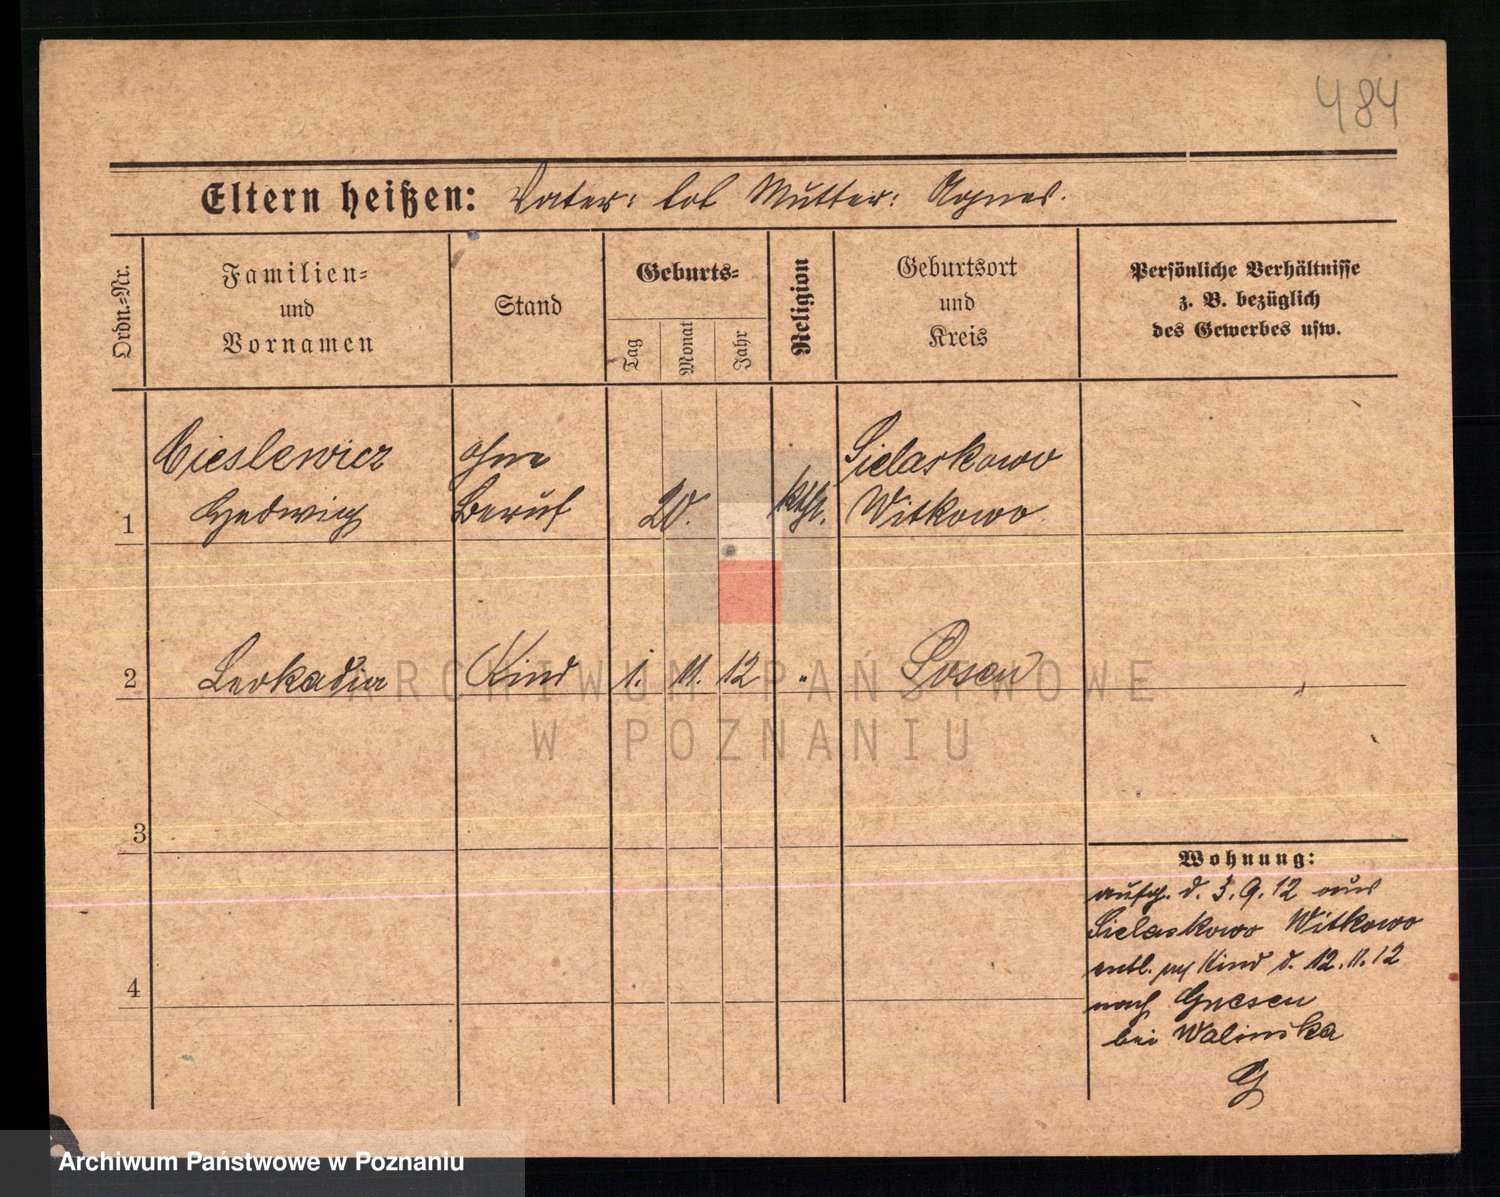 484
Eltern heißen: Vater: tot Mutter: Agnes.
Ordn.-Nr.
Familien- und Vornamen
Stand
Geburts-
Tag
Monat
Jahr
Religion
Geburtsort und Kreis
Persönliche Verhältnisse
z. B. bezüglich
des Gewerbes usw.
Cieslewicz ohne Sielaskowo
1 Hedwig Beruf 20. kth. Witkowo
2 Leokadia Kind 1. 11. 12 " Posen
3
4
Wohnung:
aufg. d. 3.9.12 aus
Sielaskowo Witkowo
entl. Kind d. 12.11.12
nach Gnesen
bei Walinska
ARCHIWUM PAŃSTWOWE
W POZNANIU
Archiwum Państwowe w Poznaniu